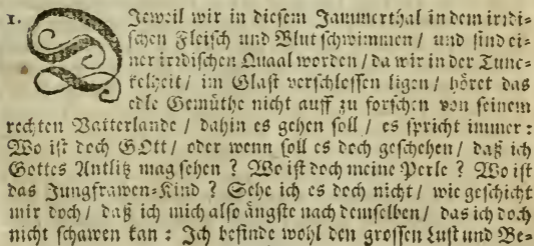 1. DJeweil wir in diesem Jammerthal in dem irrdi-
schen Fleisch und Blut schwimmen / und sind ei-
ner irrdischen Quaal worden / da wir in der Tunc-
kelheit / im Glast verschlossen ligen / höret das
edle Gemüthe nicht auff zu forschen von seinem
rechten Vatterlande / dahin es gehen soll / es spricht immer:
Wo ist doch GOtt / oder wenn soll es doch geschehen / daß ich
Gottes Antlitz mag sehen ? Wo ist doch meine Perle ? Wo ist
das Jungfrawen-Kind ? Sehe ich es doch nicht / wie geschicht
mir doch / daß ich mich also ängste nach demselben / das ich doch
nicht schawen kan : Jch befinde wohl den grossen Lust und Be-